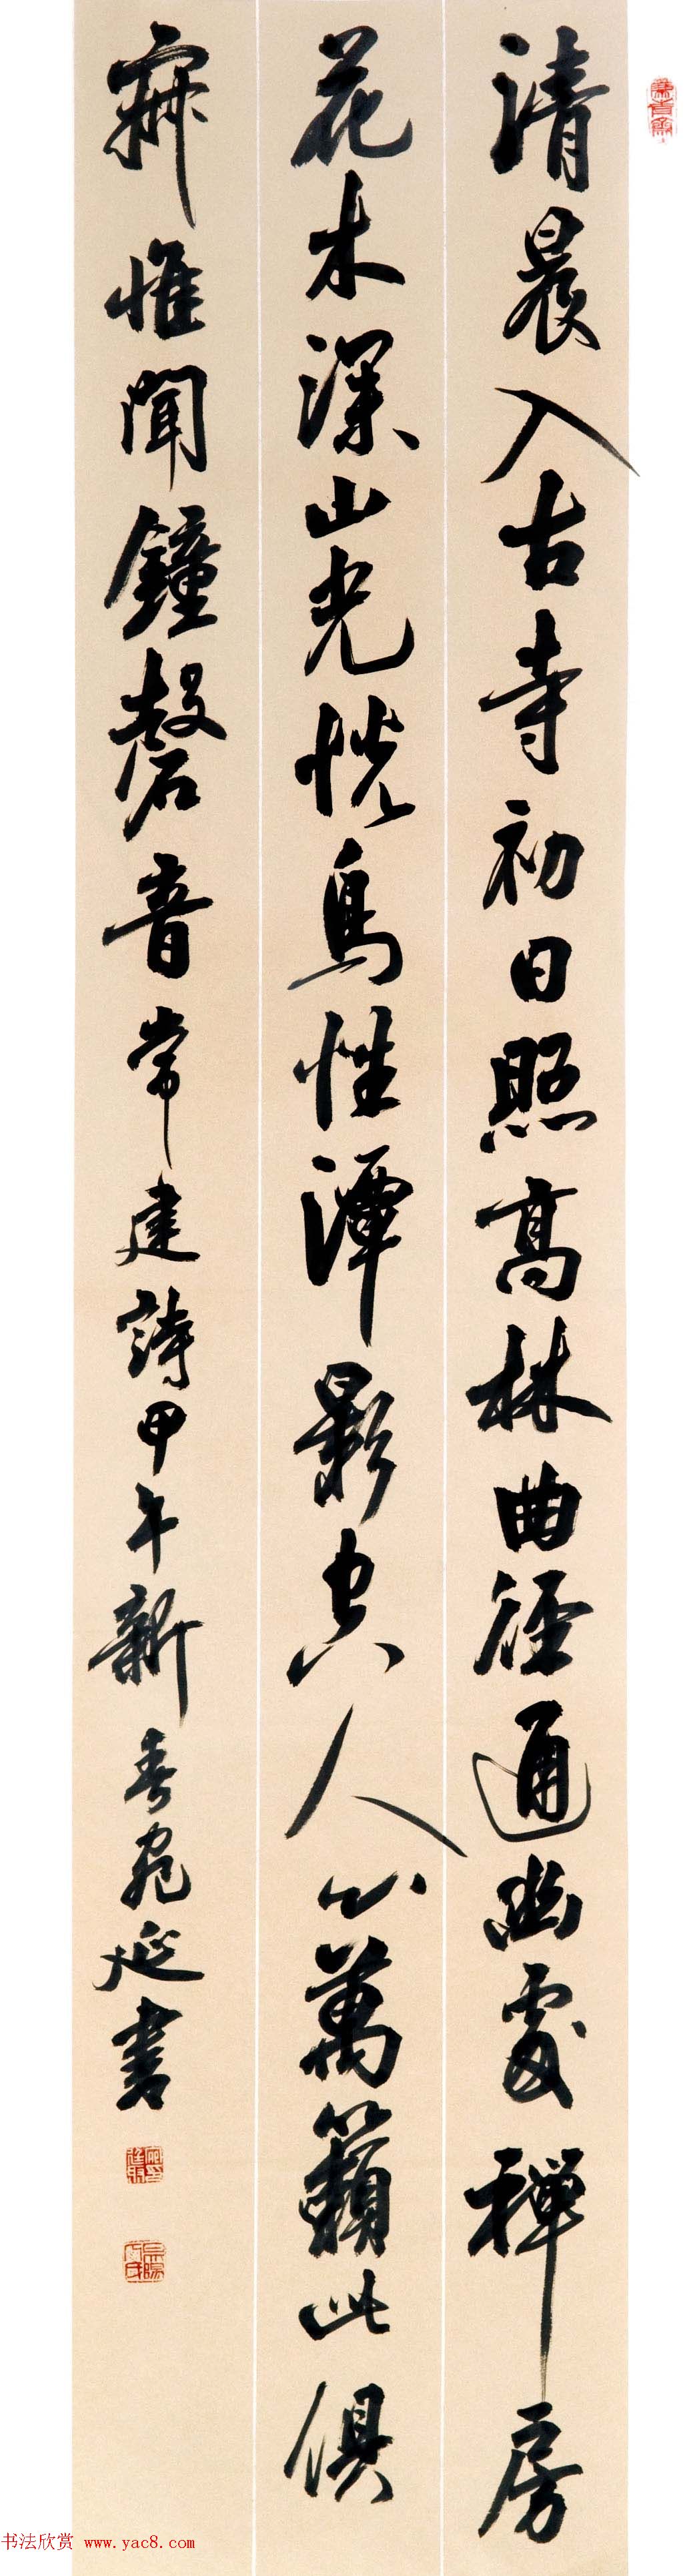 清晨入古寺初日照高林曲徑通幽處禪房
花木深山光悅鳥性潭影空人心萬籟此俱
寂惟聞鐘磬音常建詩甲午新春延書
书法欣赏 www.yac8.com